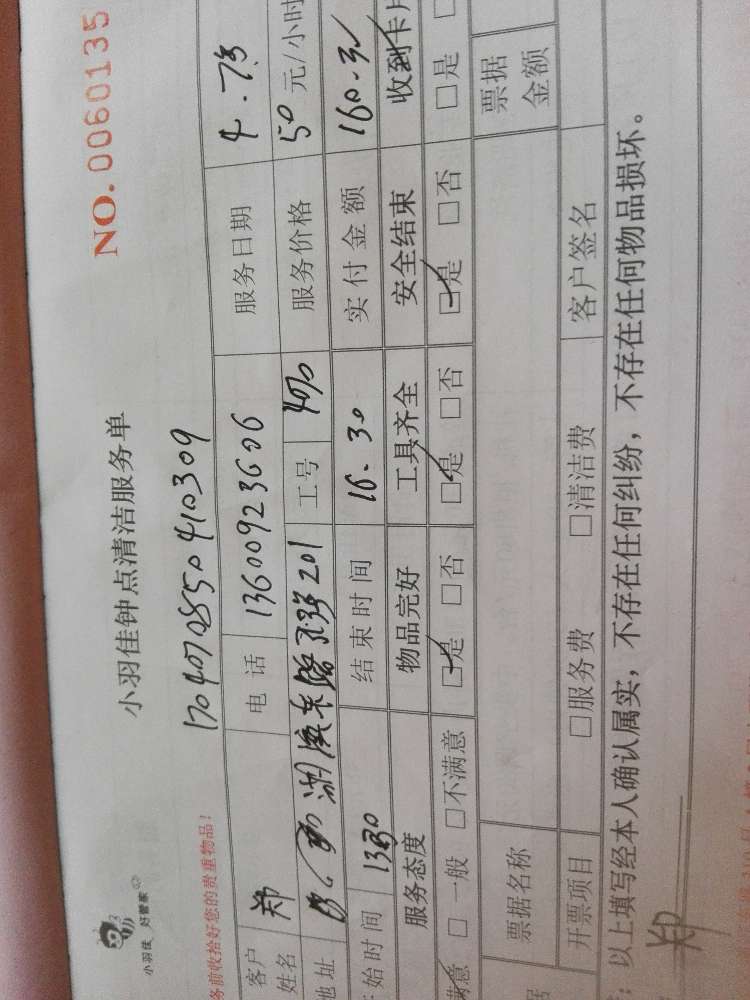 小羽佳 好管家
小羽佳钟点清洁服务单
NO. 0060135
务前收拾好您的贵重物品！
17040708550410309
客户姓名 郑 电话 13600923606 服务日期 4.7
地址 201 工号 服务价格 50 元/小时
始时间 1330 结束时间 16.30 实付金额 160.
服务态度 物品完好 工具齐全 安全结束 收到卡片
满意 □ 一般 □不满意 □是 □否 □是 □否 □是 □否 □是
票据名称 票据金额
开票项目 □服务费 □清洁费 客户签名
：以上填写经本人确认属实，不存在任何纠纷，不存在任何物品损坏。
郑